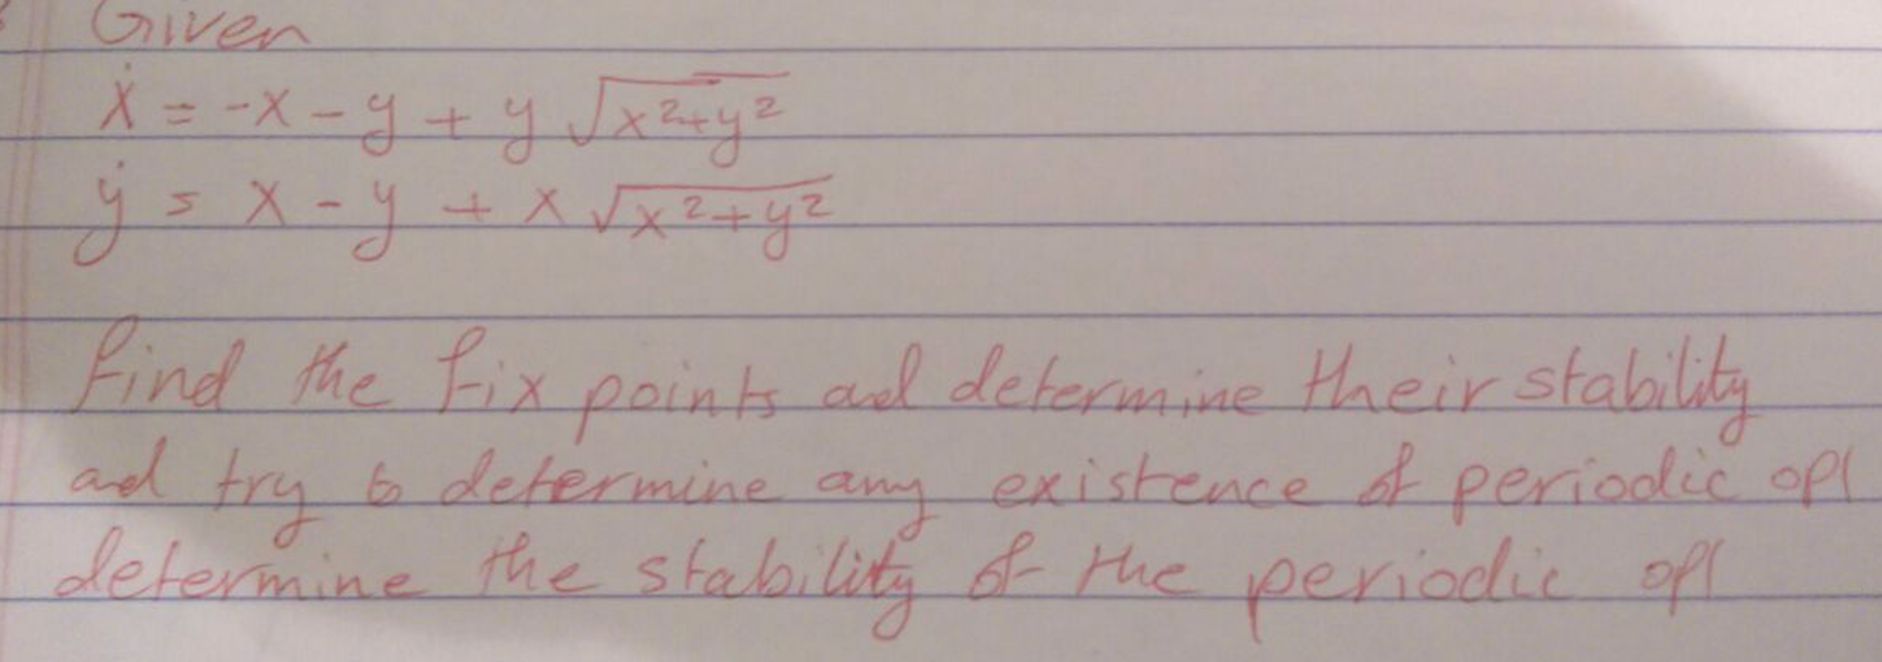 Given
ẋ = -x - y + y √x²+y²
ẏ = x - y + x √x²+y²
find the fix points ad determine their stability
ad try to determine any existence of periodic opl
determine the stability of the periodic opl